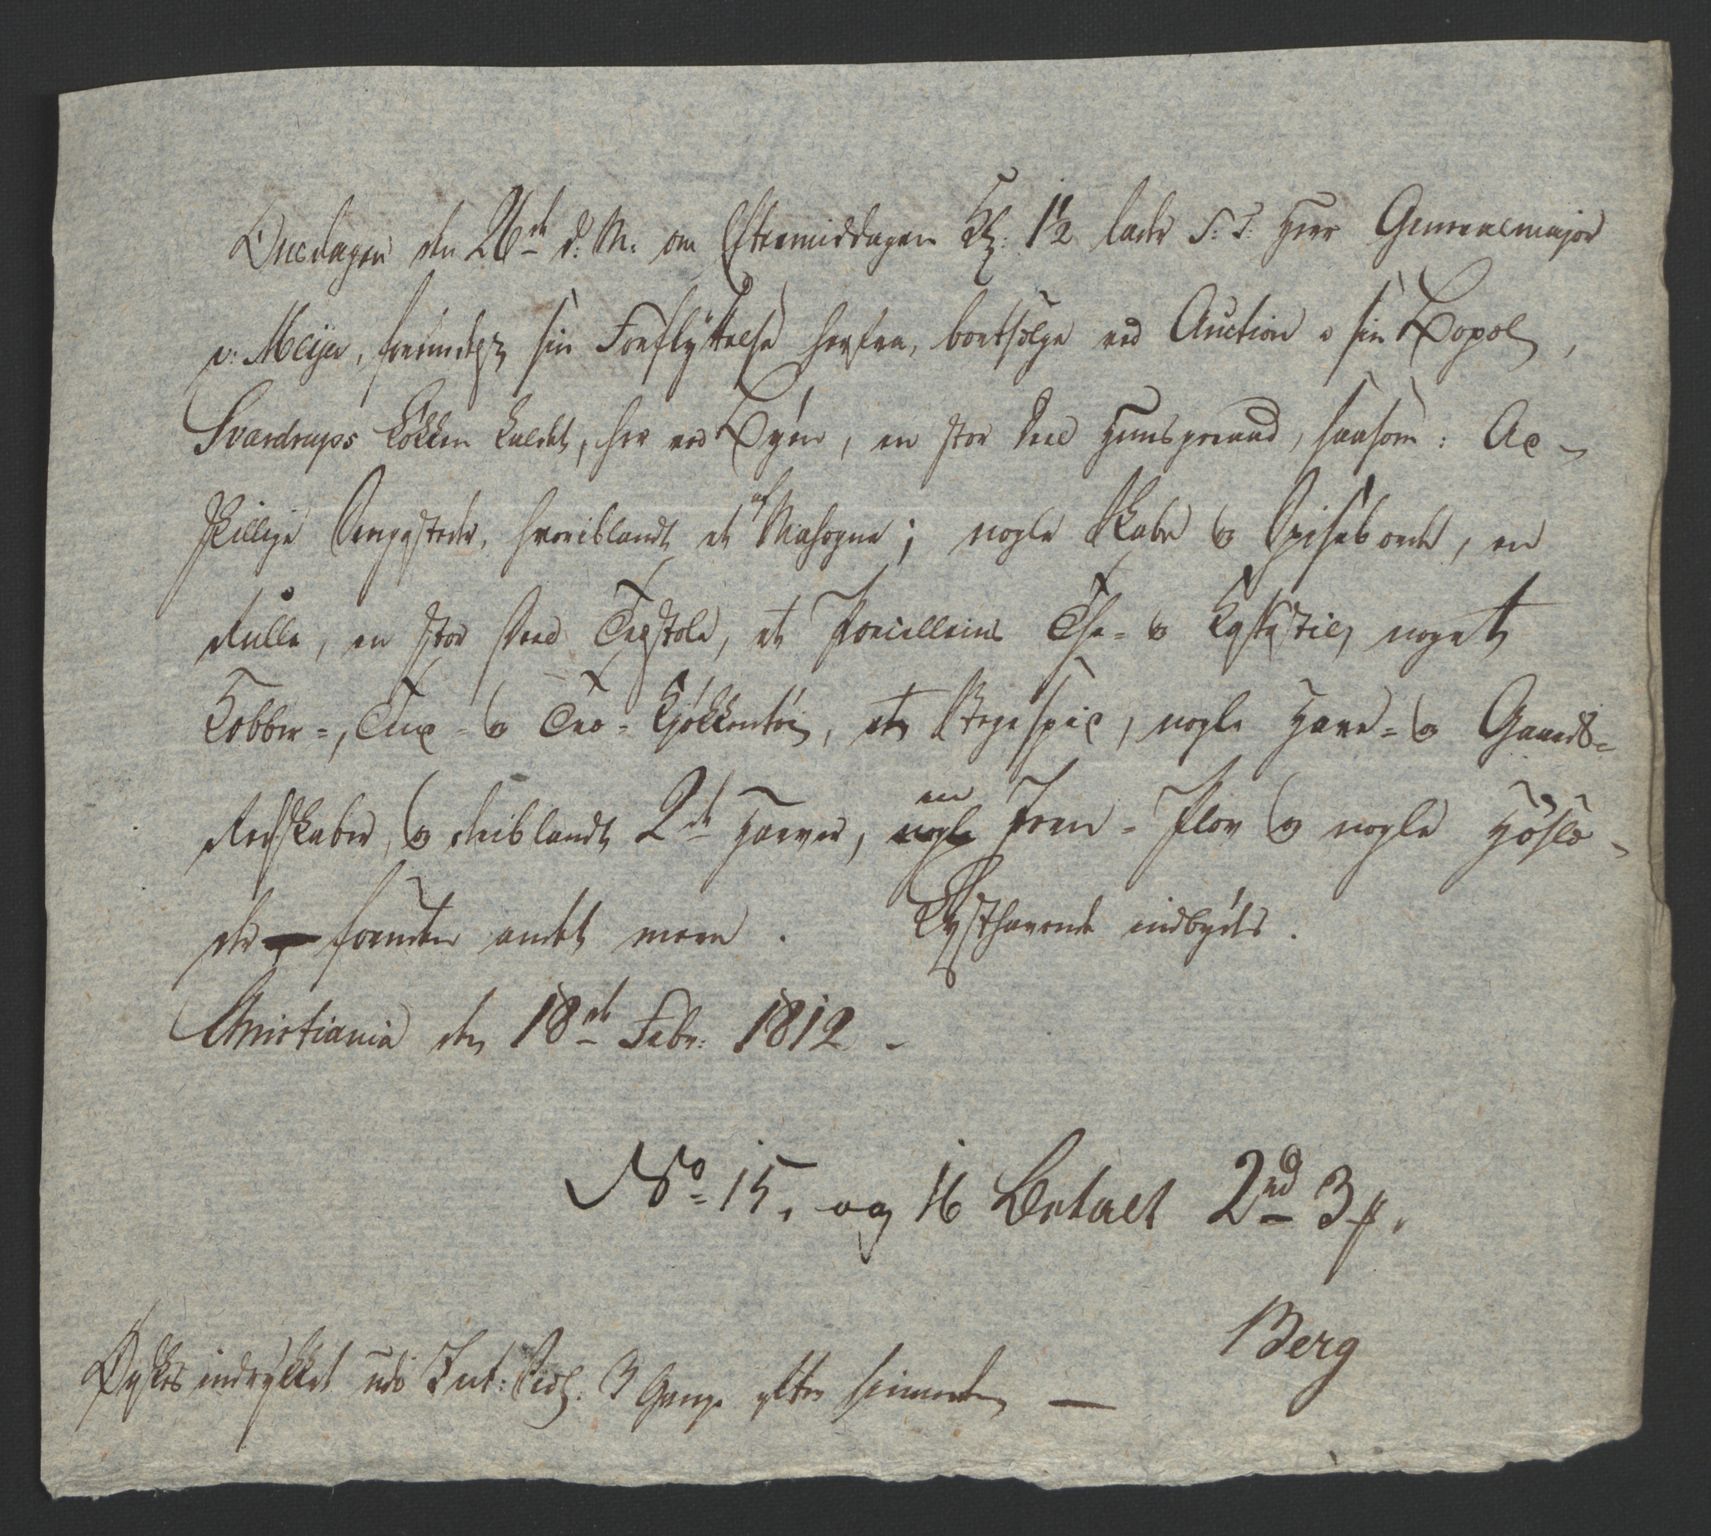 Onsdagen den 26de d: M: om Eftermiddagen Kl: 1½ lader S: T: Herr Generalmajor
v: Meijer, formedelst sin Forflyttelse herfra, bortsælge ved Auction i sin Bopæl,
Sværdrups Løkken kaldet, her ved Byen, en stor Deel Huusgeraad, saasom: Ad-
skillige Sengesteder, hvoriblandt et af Mahogne; nogle Skabe og Spiseborde, en
Rulle, en stor Deel Træstole, et Porcellains The- og Kaffestel, noget
Kobber-, Tin- og Træ-Kjøkkentøi, et Stegespid, nogle Have- og Gaards-
Redskaber, og deriblandt 2de Harver, en Jern-Plov og nogle Høslæ-
der foruden andet mere. Lysthavende indbydes.
Christiania den 18de Febr: 1812.
No 15, og 16 Betalt 2rd 3 s.
Berg
Øskes indrykket udi Int: Sedl. 3 Gange efter hinanden